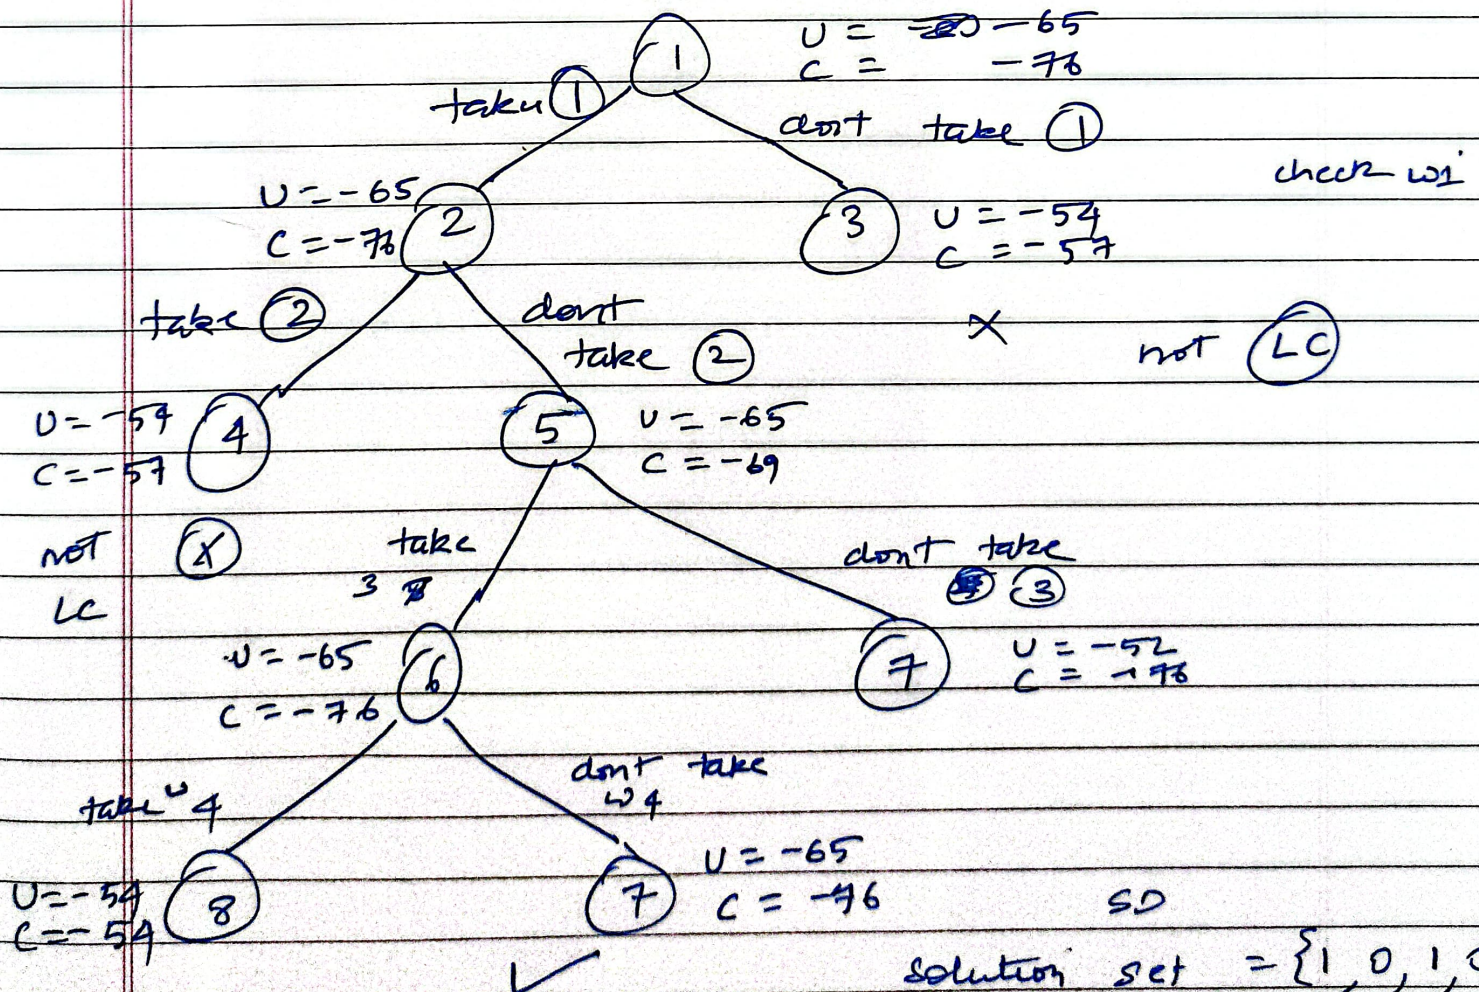 1
U = -65
C = -76
take 1
dont take 1
check w1
U = -65
C = -76
2
3
U = -54
C = -57
take 2
dont
take 2
X
not LC
U = -54
C = -57
4
5
U = -65
C = -69
not X
LC
take
3
dont take
3
U = -65
C = -76
6
7
U = -52
C = -76
take w 4
dont take
w 4
U = -54
C = -54
8
7
U = -65
C = -76
SD
solution set = {1, 0, 1,